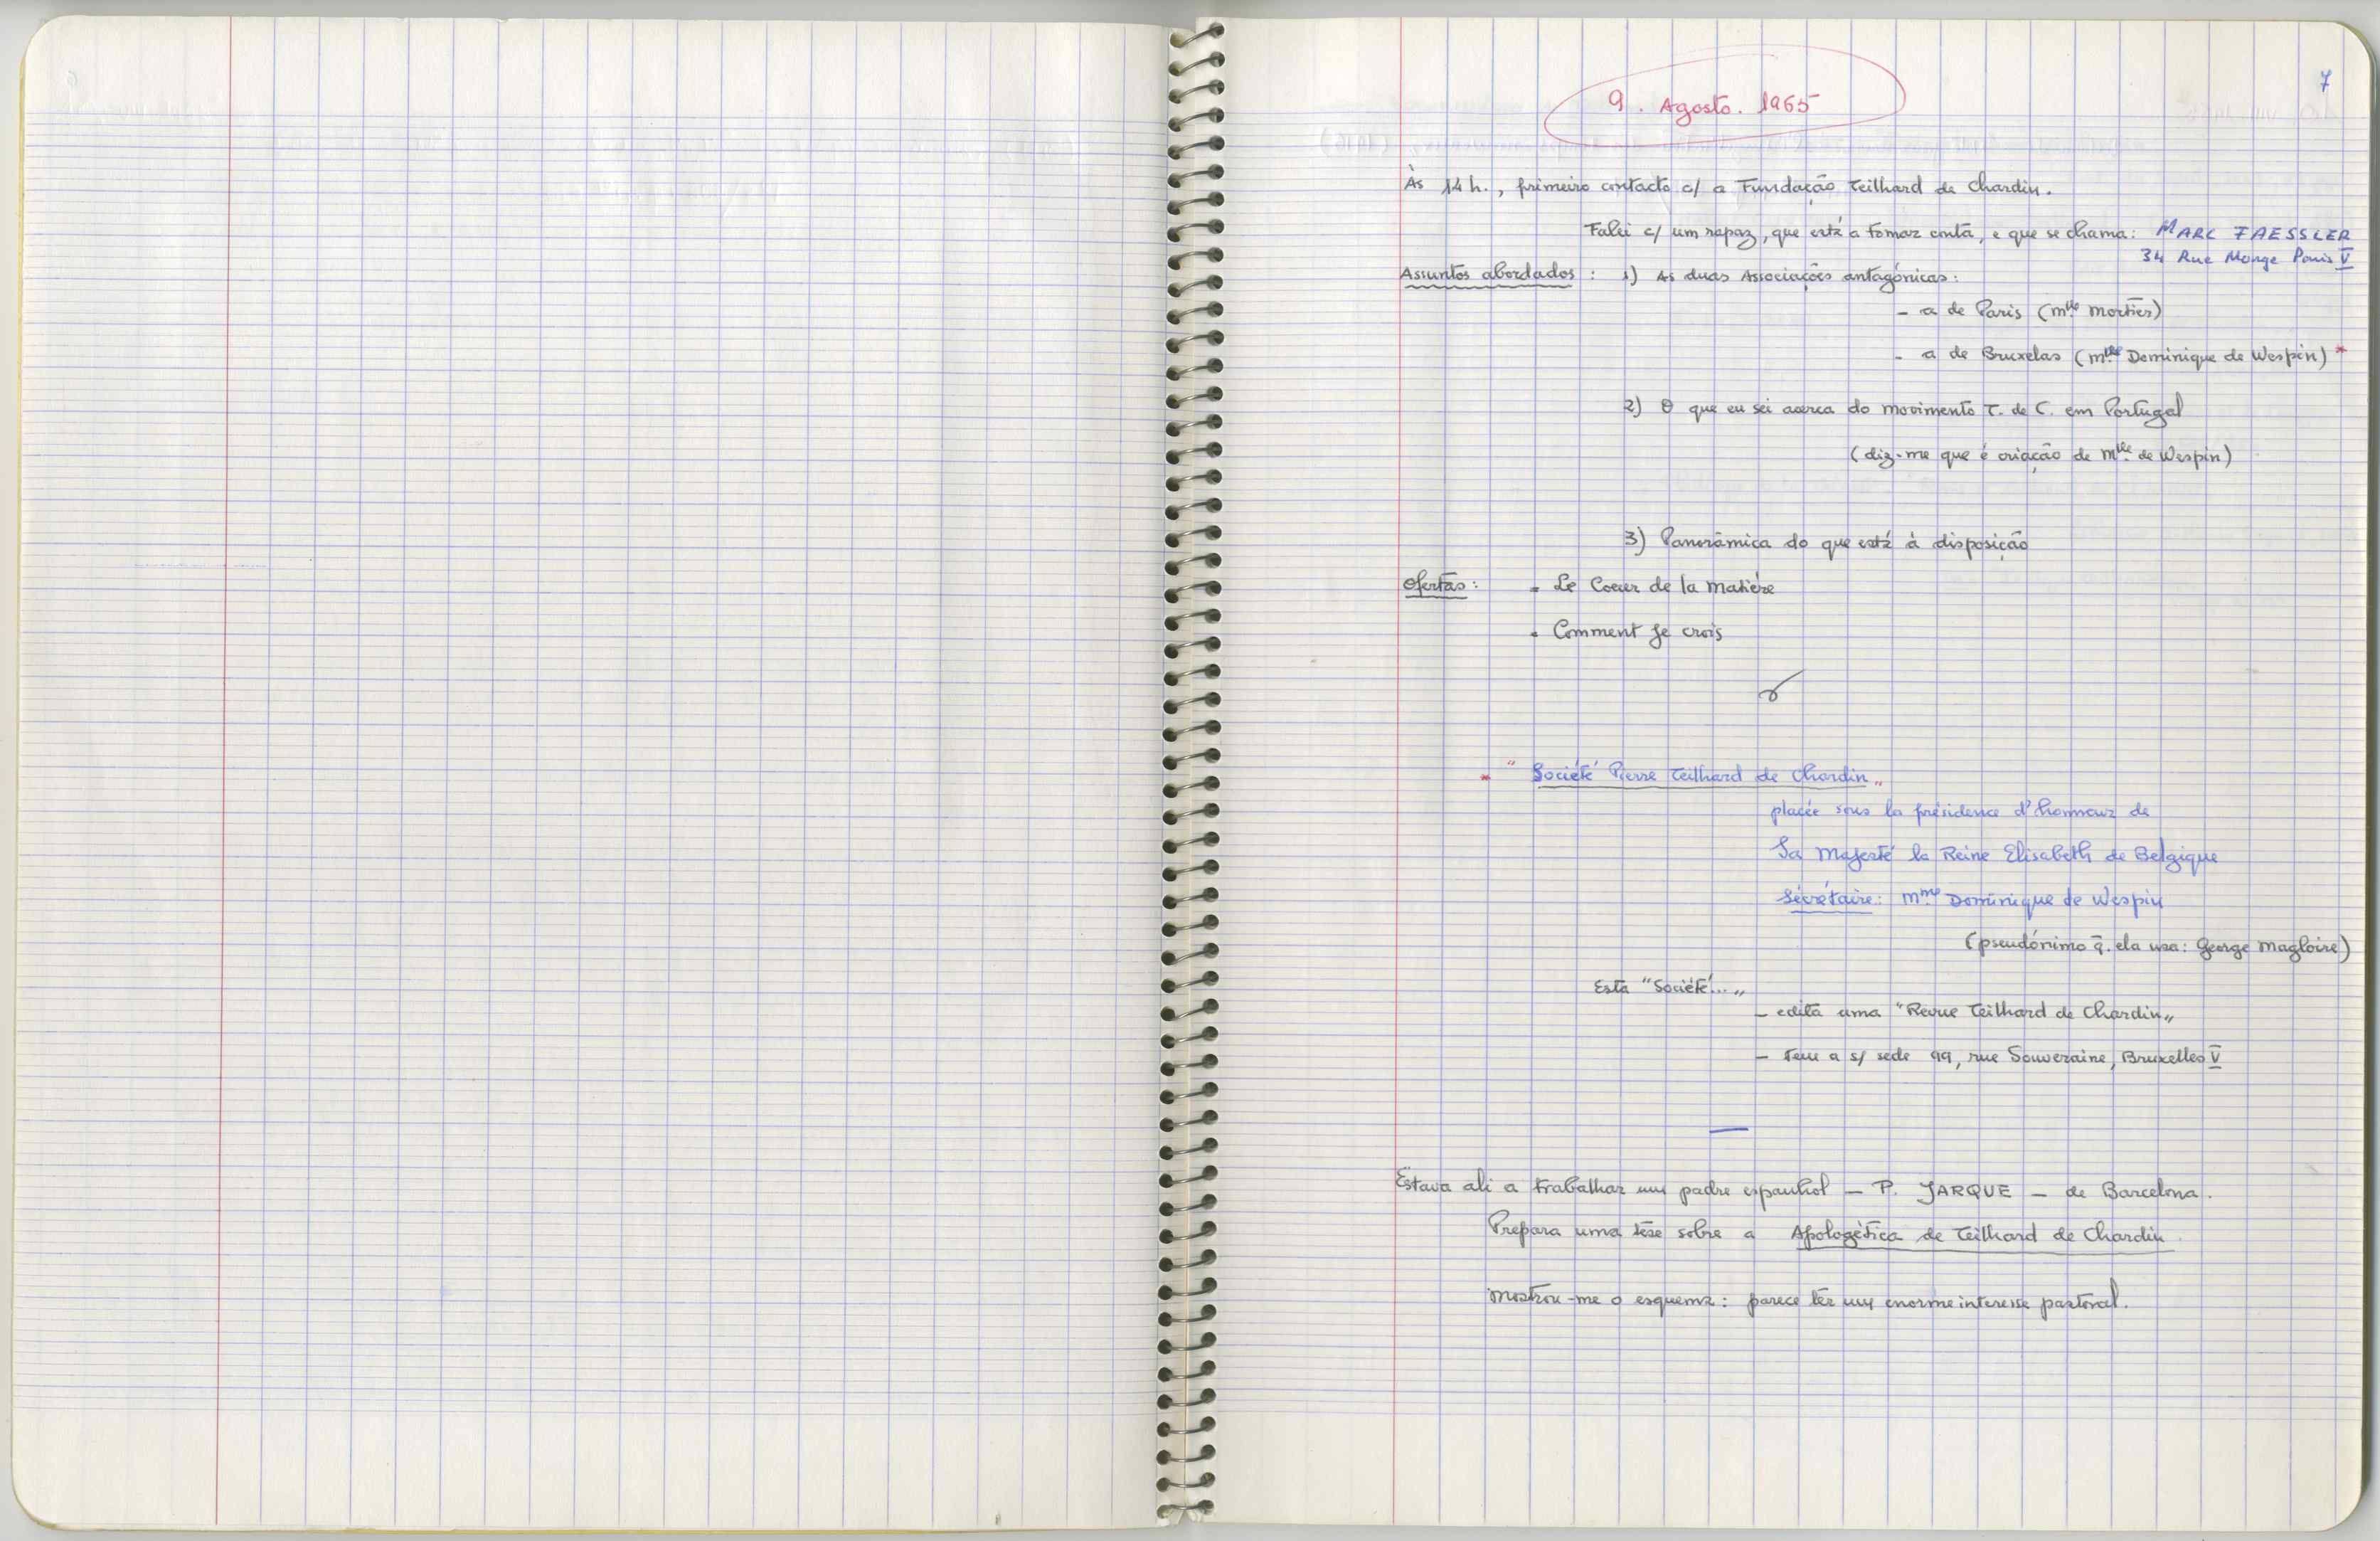 7
9. Agosto. 1965
Às 14 h., primeiro contacto c/ a Fundação Teilhard de Chardin.
Falei c/ um rapaz, que está a tomar conta, e que se chama: MARC FAESSLER
34 Rue Monge Paris V
Assuntos abordados : 1) As duas Associações antagónicas:
- a de Paris (Mlle Mortier)
- a de Bruxelas (Mlle Dominique de Wespin) *
2) O que eu sei acerca do movimento T. de C. em Portugal
(diz-me que é criação de Mlle de Wespin)
3) Panorâmica do que está à disposição
Ofertas: - Le Coeur de la Matière
- Comment je crois
* "Société Pierre Teilhard de Chardin„
placée sous la présidence d'honneur de
Sa Majesté la Reine Elisabeth de Belgique
Sécrétaire: Mme Dominique de Wespin
(pseudónimo q̃. ela usa: George Magloire)
Esta "Société...„
- edita uma "Revue Teilhard de Chardin„
- tem a s/ sede 99, rue Souveraine, Bruxelles V
Estava ali a trabalhar um padre espanhol - P. JARQUE - de Barcelona.
Prepara uma tese sobre a Apologètica de Teilhard de Chardin.
Mostrou-me o esquema: parece têr um enorme interesse pastoral.